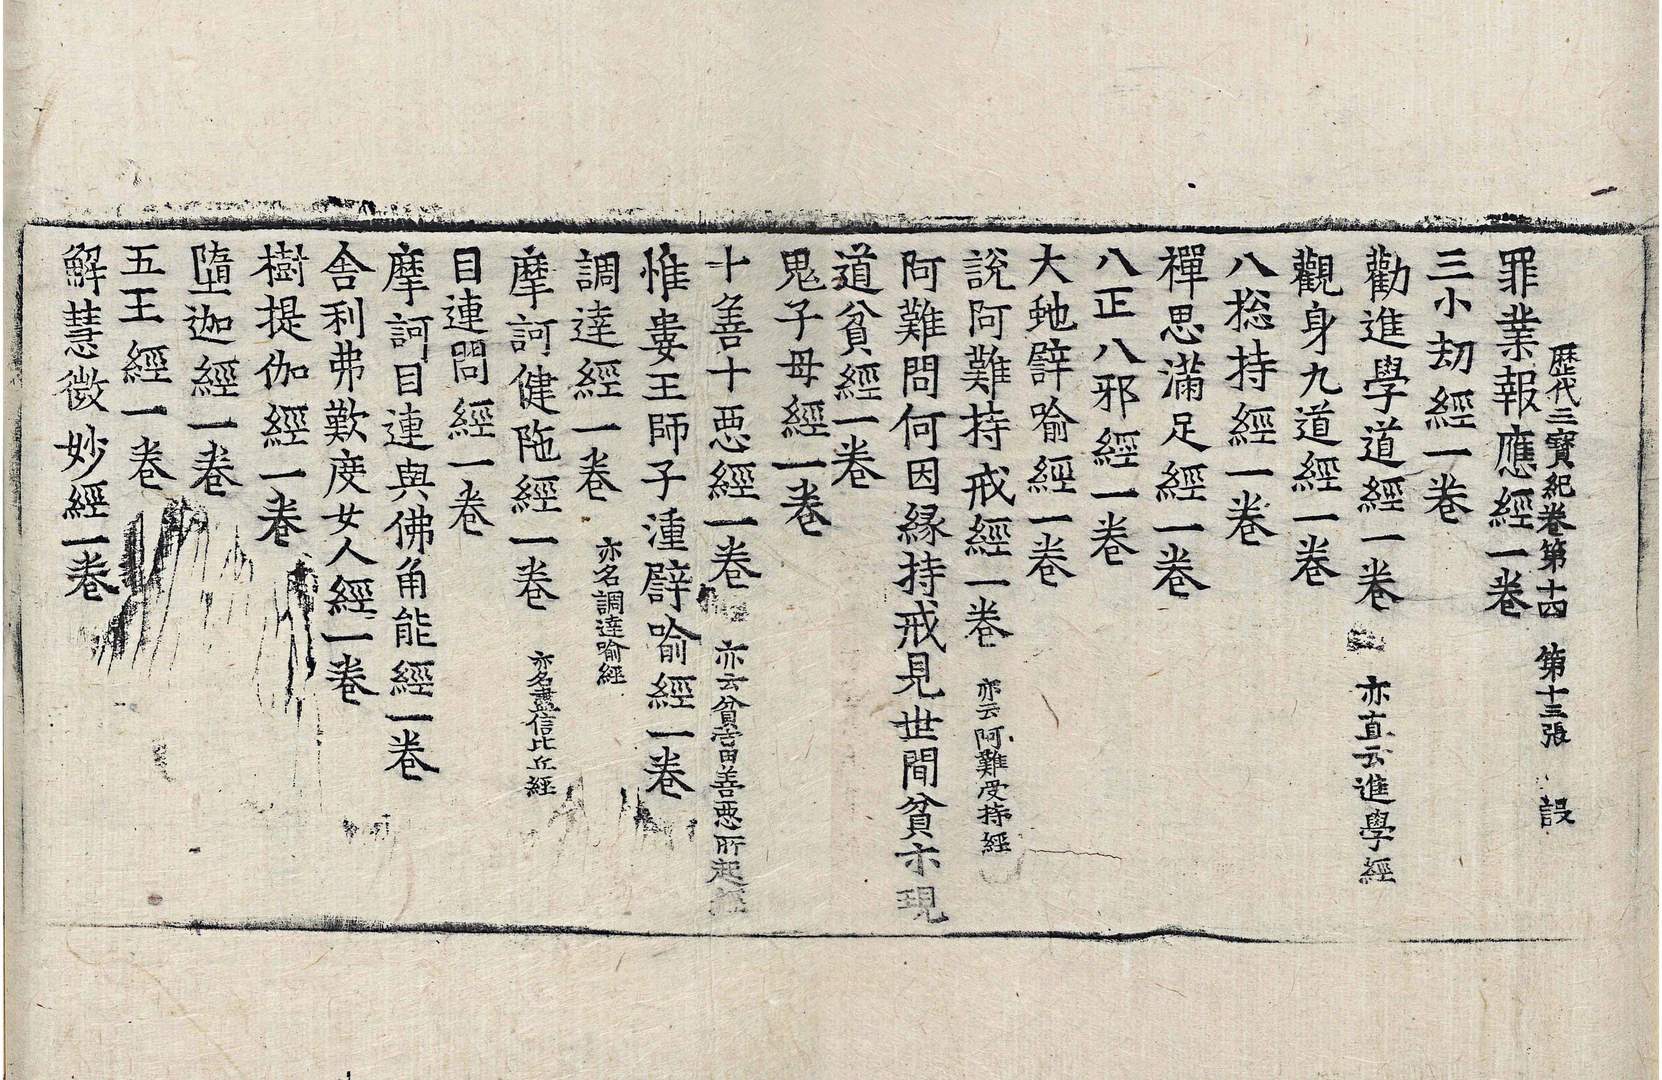 罪業報應經一卷
歷代三寶紀卷第十四 第十三張 設
三小劫經一卷
勸進學道經一卷 亦直云進學經
觀身九道經一卷
八捴持經一卷
禪思滿足經一卷
八正八邪經一卷
大虵譬喻經一卷
說阿難持戒經一卷 亦云阿難受持經
阿難問何因緣持戒見世間貧亦現
道貧經一卷
鬼子母經一卷
十善十惡經一卷 亦云貧富善惡所起經
惟婁王師子湩譬喻經一卷
調達經一卷 亦名調達喻經
摩訶健陁經一卷 亦名盡信比丘經
目連問經一卷
摩訶目連與佛角能經一卷
舍利弗歎度女人經一卷
樹提伽經一卷
墮迦經一卷
五王經一卷
解慧微妙經一卷